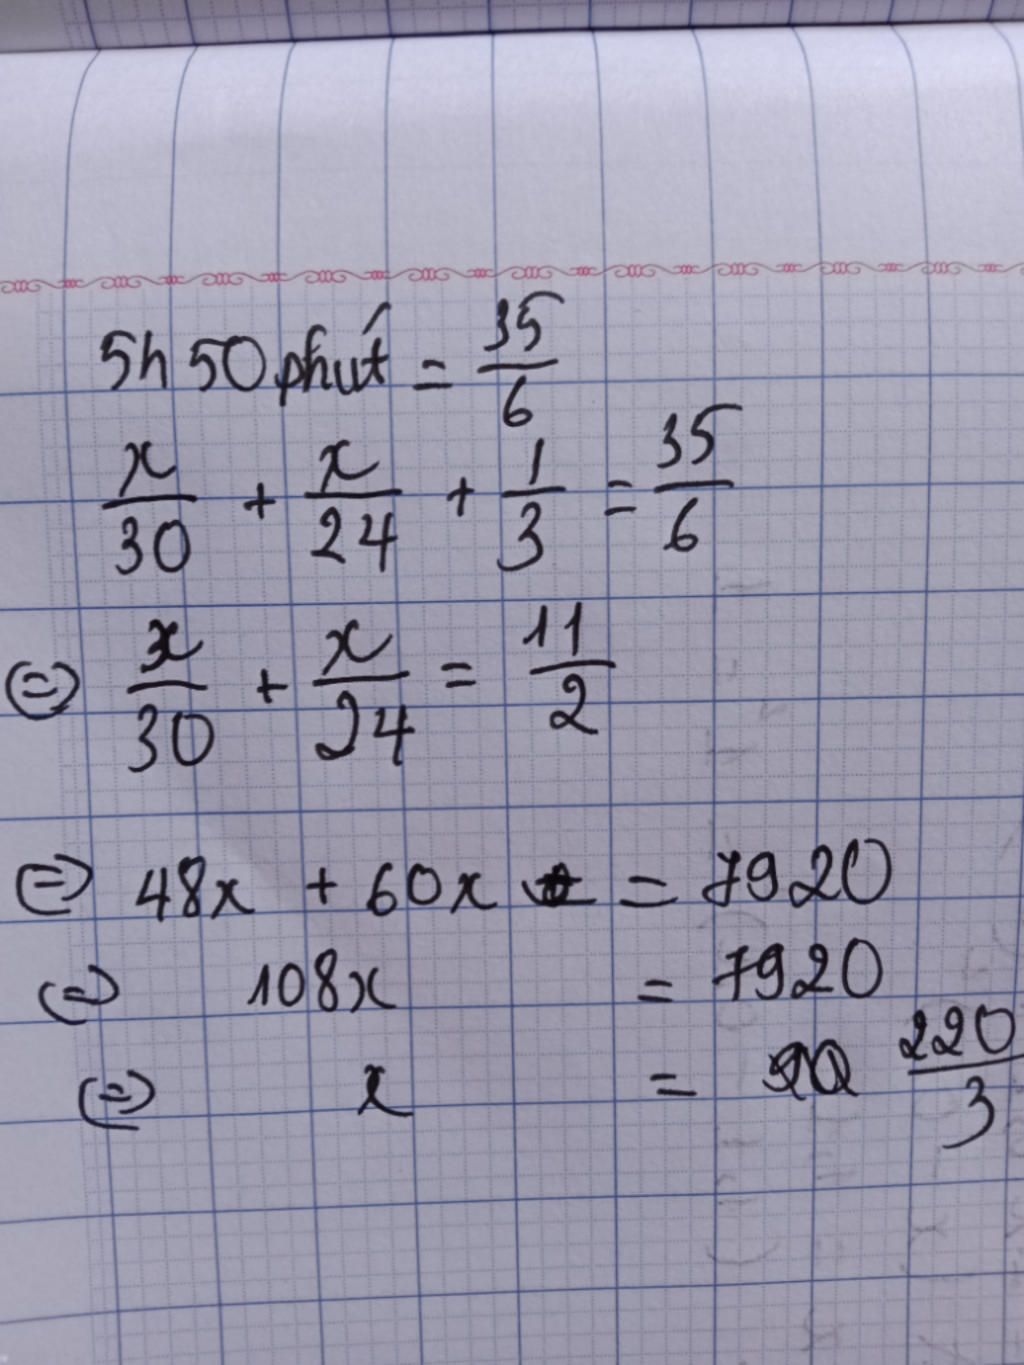 5h 50 phút = 35/6
x/30 + x/24 + 1/3 = 35/6
⇔ x/30 + x/24 = 11/2
⇔ 48x + 60x = 7920
⇔ 108x = 7920
⇔ x = 220/3